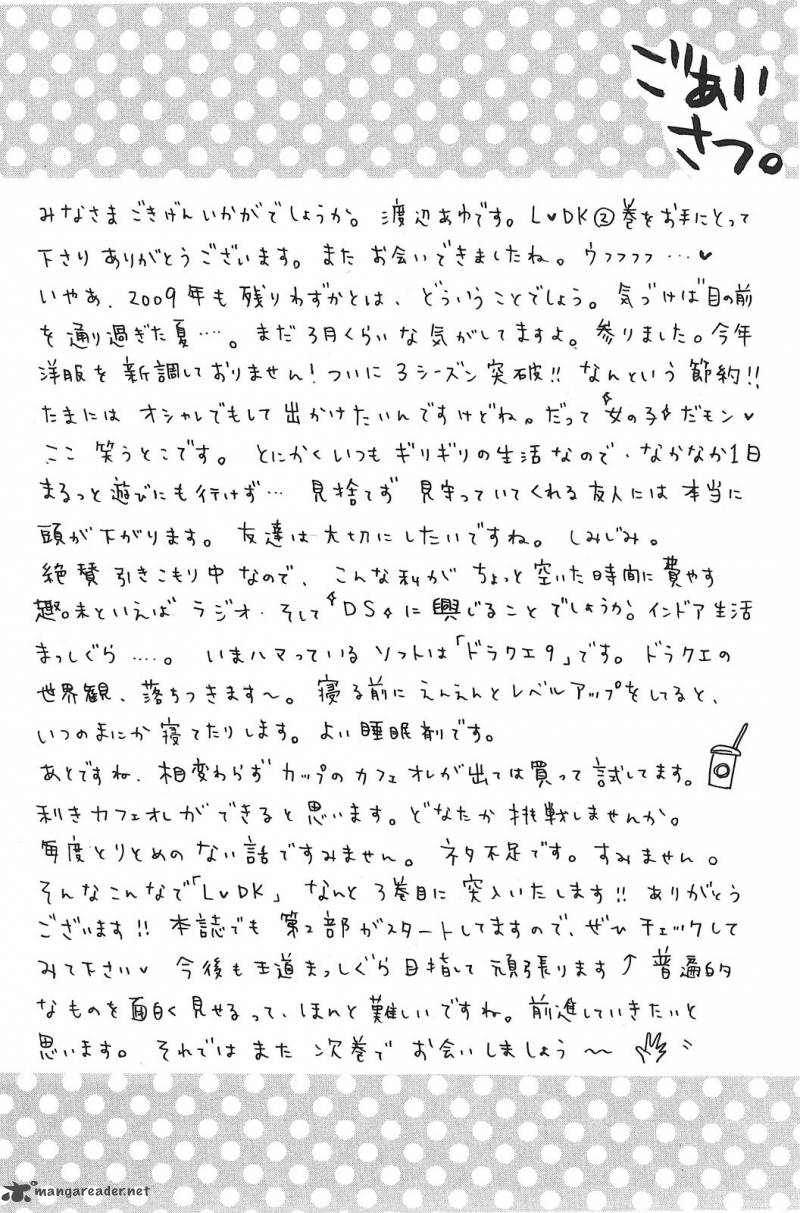 ごあい
さつ。
みなさま ごきげん いかがでしょうか。 渡辺あゆです。 L♥DK②巻をお手にとって
下さり ありがとうございます。また お会いできましたね。ウフフフフ…♥
いやあ、2009年も残りわずかとは、どういうことでしょう。気づけば目の前
を通り過ぎた夏…。まだ3月くらいな気がしてますよ。参りました。今年
洋服を新調しておりません！ついに3シーズン突破!! なんという節約!!
たまには オシャレでもして出かけたいんですけどね。だって 女の子 だモン♥
ここ 笑うとこです。 とにかくいつも ギリギリの生活なので、なかなか1日
まるっと遊びにも行けず… 見捨てず 見守っていてくれる友人には本当に
頭が下がります。 友達は大切にしたいですね。 しみじみ。
絶賛引きこもり中なので、こんな私がちょっと空いた時間に費やす
趣味といえば ラジオ・そして DS に興じることでしょうか。インドア生活
まっしぐら…。 いまハマっているソフトは「ドラクエ9」です。ドラクエの
世界観、落ちつきます〜。寝る前にえんえんとレベルアップをしてると、
いつのまにか寝てたりします。よい睡眠剤です。
あとですね、相変わらず カップのカフェオレが出ては買って試してます。
利きカフェオレができると思います。どなたか挑戦しませんか。
毎度とりとめのない話ですみません。 ネタ不足です。すみません。
そんなこんなで「L♥DK」 なんと 3巻目に突入いたします!! ありがとう
ございます!! 本誌でも 第2部がスタートしてますので、ぜひ チェックして
みて下さい♥ 今後も王道まっしぐら目指して頑張ります↑ 普遍的
なものを面白く見せるって、ほんと難しいですね。前進していきたいと
思います。それではまた 次巻で お会いしましょう〜
mangareader.net